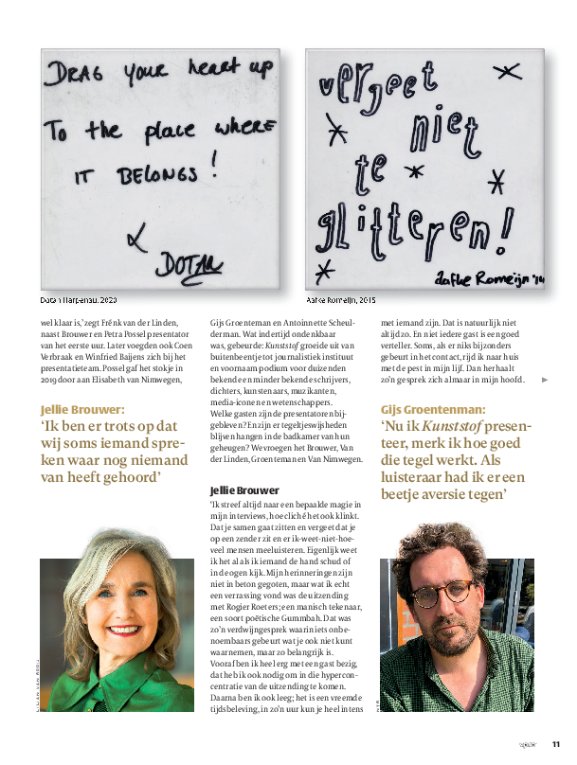 DRAG your heart up
To the place where
IT BELONGS!
DOTAN
vergeet
niet
te
glitteren!
Aafke Romeijn '14
Dotan Harpenau, 2020
Aafke Romeijn, 2015
wel klaar is,’ zegt Frénk van der Linden,
naast Brouwer en Petra Possel presentator
van het eerste uur. Later voegden ook Coen
Verbraak en Winfried Baijens zich bij het
presentatieteam. Possel gaf het stokje in
2019 door aan Elisabeth van Nimwegen,
Jellie Brouwer:
‘Ik ben er trots op dat
wij soms iemand spre-
ken waar nog niemand
van heeft gehoord’
Gijs Groenteman en Antoinnette Scheul-
derman. Wat indertijd ondenkbaar
was, gebeurde: Kunststof groeide uit van
buitenbeentje tot journalistiek instituut
en voornaam podium voor duizenden
bekende en minder bekende schrijvers,
dichters, kunstenaars, muzikanten,
media-iconen en wetenschappers.
Welke gasten zijn de presentatoren bij-
gebleven? En zijn er tegeltjeswijsheden
blijven hangen in de badkamer van hun
geheugen? We vroegen het Brouwer, Van
der Linden, Groenteman en Van Nimwegen.
Jellie Brouwer
‘Ik streef altijd naar een bepaalde magie in
mijn interviews, hoe cliché het ook klinkt.
Dat je samen gaat zitten en vergeet dat je
op een zender zit en er ik-weet-niet-hoe-
veel mensen meeluisteren. Eigenlijk weet
ik het al als ik iemand de hand schud of
in de ogen kijk. Mijn herinneringen zijn
niet in beton gegoten, maar wat ik echt
een verrassing vond was de uitzending
met Rogier Roeters; een manisch tekenaar,
een soort poëtische Gummbah. Dat was
zo’n verdwijngesprek waarin iets onbe-
noembaars gebeurt wat je ook niet kunt
waarnemen, maar zo belangrijk is.
Vooraf ben ik heel erg met een gast bezig,
dat heb ik ook nodig om in die hypercon-
centratie van de uitzending te komen.
Daarna ben ik ook leeg; het is een vreemde
tijdsbeleving, in zo’n uur kun je heel intens
met iemand zijn. Dat is natuurlijk niet
altijd zo. En niet iedere gast is een goed
verteller. Soms, als er niks bijzonders
gebeurt in het contact, rijd ik naar huis
met de pest in mijn lijf. Dan herhaalt
zo’n gesprek zich almaar in mijn hoofd.
Gijs Groenteman:
‘Nu ik Kunststof presen-
teer, merk ik hoe goed
die tegel werkt. Als
luisteraar had ik er een
beetje aversie tegen’
11